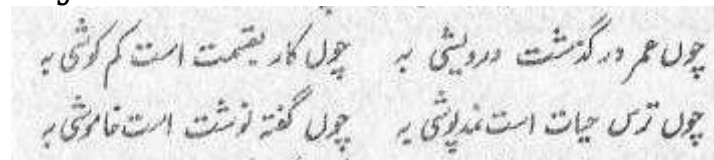 چوں عمر در گذشت درویشی به چوں کار بقسمت است کم کوشی به
چوں ترس حیات است نمدپوشی به چوں گفته نوشت است خاموشی به